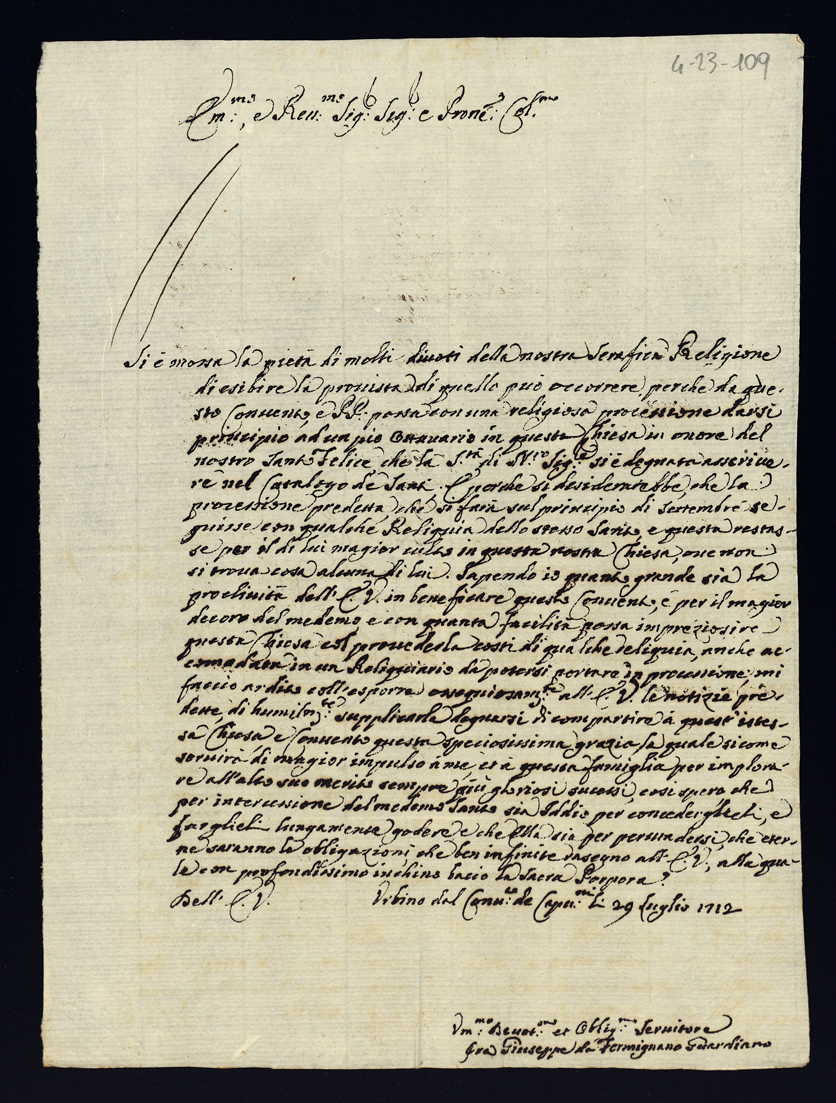 4-23-109
Em:mo, e Reu:mo Sig: Sig: e Prone: Col:mo
Si è mossa la pietà di molti diuoti della nostra Serafica Religione
di esibire la prouista di quello può occorrere, perche da que-
sto Conuento, e PP. possa con una religiosa processione darsi
principio ad un pio Ottauario in questa Chiesa in onore del
nostro Santo Felice che la S.tà di N.ro Sig.re si è degnata asscriue-
re nel Catalogo de Santi. E perche si desiderarebbe, che la
processione predetta, che si farà sul principio di Settembre se-
guisse con qualche Reliquia dello stesso Santo, e questa restas-
se per il di lui magior culto in questa nostra Chiesa, oue non
si troua cosa alcuna di lui. Sapendo io quanto grande sia la
procliuità dell'E.V. in beneficare questo Conuento, e per il magior
decoro del medemo e con quanta facilità possa impreziosire
questa Chiesa col prouederla costì di qualche reliquia, anche ac-
comodata in un Reliquiario da potersi portare in processione; mi
faccio ardito coll'esporre ossequiosam.te all'E.V. le notizie pre-
dette, di humilm.te supplicarla degnarsi di compartire à quest'istes-
sa Chiesa, e Conuento questa speciosissima grazia, la quale sicome
seruirà di magior impulso à me, et à questa famiglia per implora-
re all'alto suo merito sempre più gloriosi sucessi, così spero che
per intercessione del medemo Santo sia Iddio per concederglieli, e
farglieli lungamente godere e che Ella sia per persuadersi, che eter-
ne saranno le obligazioni, che ben infinite rasegno all'E.V., alla qua-
le con profondissimo inchino bacio la Sacra Porpora.
Dell'E.V. Urbino dal Conu:to de Capu:ni li 29 Luglio 1712
Um:mo Deuot:mo et Oblig:mo Seruitore
fra Giuseppe da Fermignano Guardiano